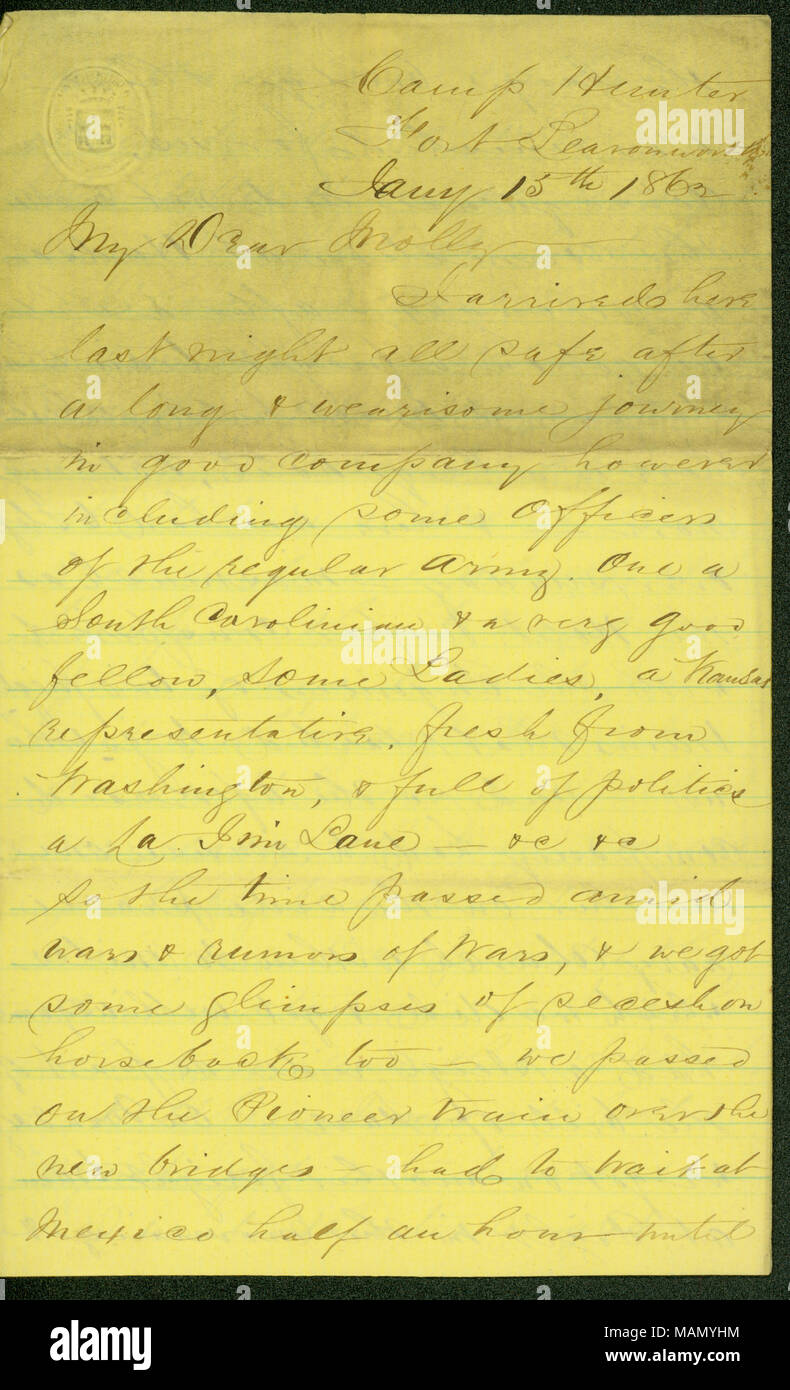 Camp Hunter
Fort Leavenworth
Jany 15th 1862
My Dear Molly
I arrived here
last night all safe after
a long & wearisome journey
in good company however
including some officers
of the regular army. One a
South Carolinian & a very good
fellow, some Ladies, a Kansas
representative, fresh from
Washington, & full of politics
a La Jim Lane — &c &c
So the time passed amid
wars & rumors of Wars, & we got
some glimpses of secesh on
horseback too — we passed
on the Pioneer train over the
new bridges — had to wait at
Mexico half an hour until
alamy
Image ID: MAMYHM
www.alamy.com